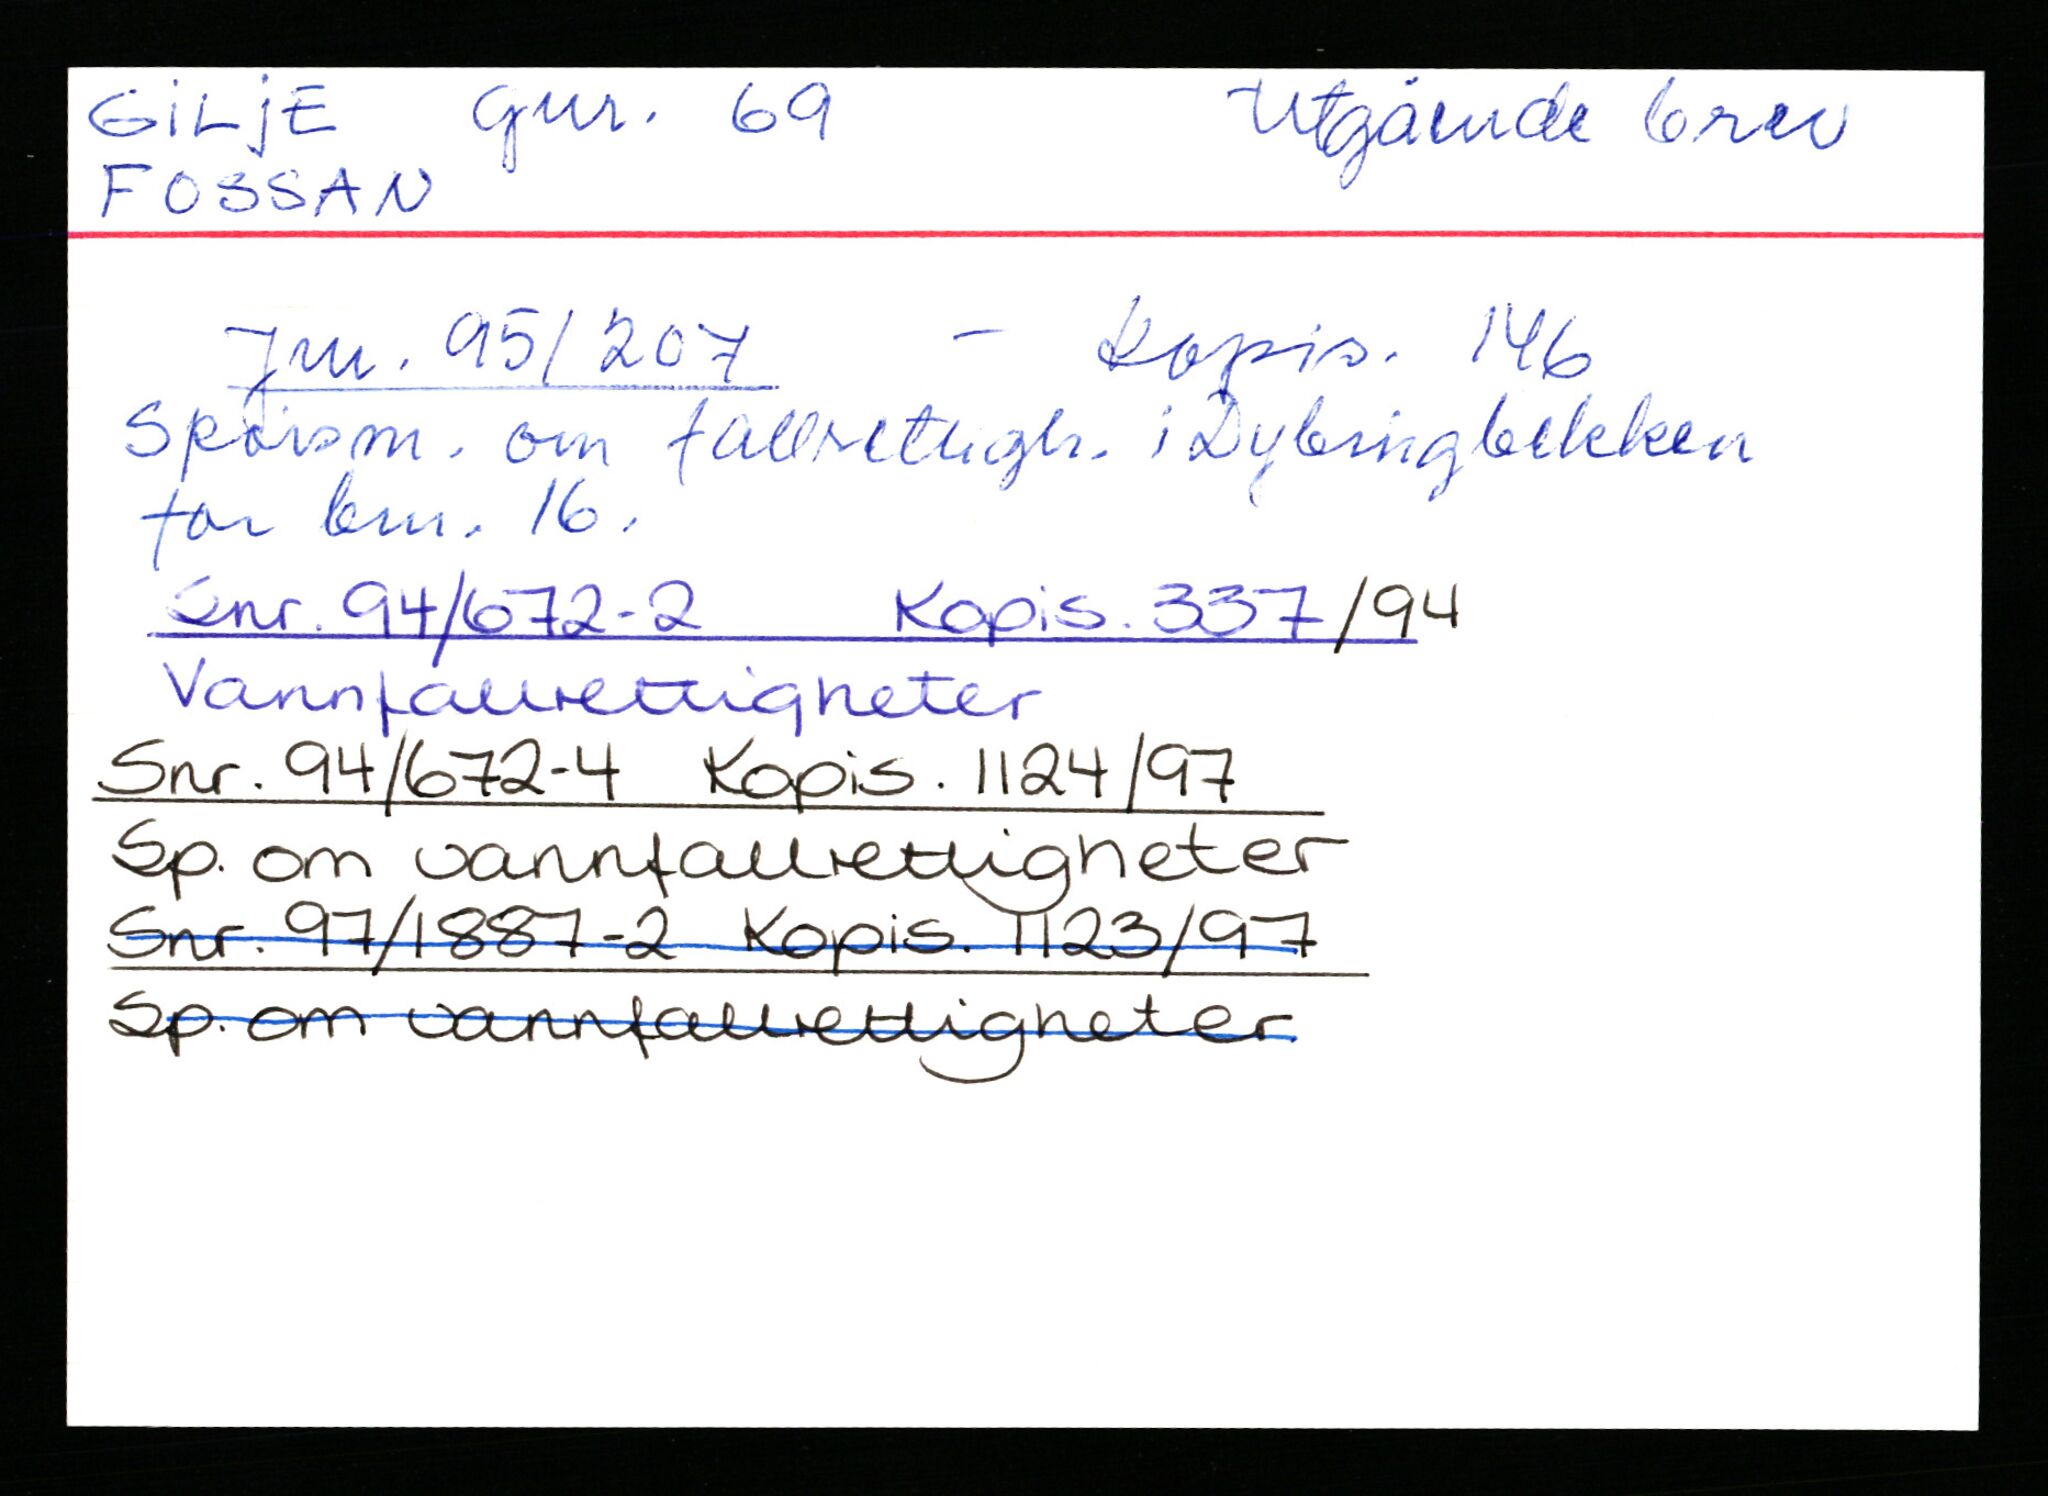 GILJE Gnr. 69 Utgående brev
FOSSAN
Jnr. 95/207 - Kopis. 146
Spørsm. om fallrettigh. i Dybingbekken
for bnr. 16.
Snr. 94/672-2 Kopis. 337/94
Vannfallrettigheter
Snr. 94/672-4 Kopis. 1124/97
Sp. om vannfallrettigheter
Snr. 97/1887-2 Kopis. 1123/97
Sp. om vannfallrettigheter